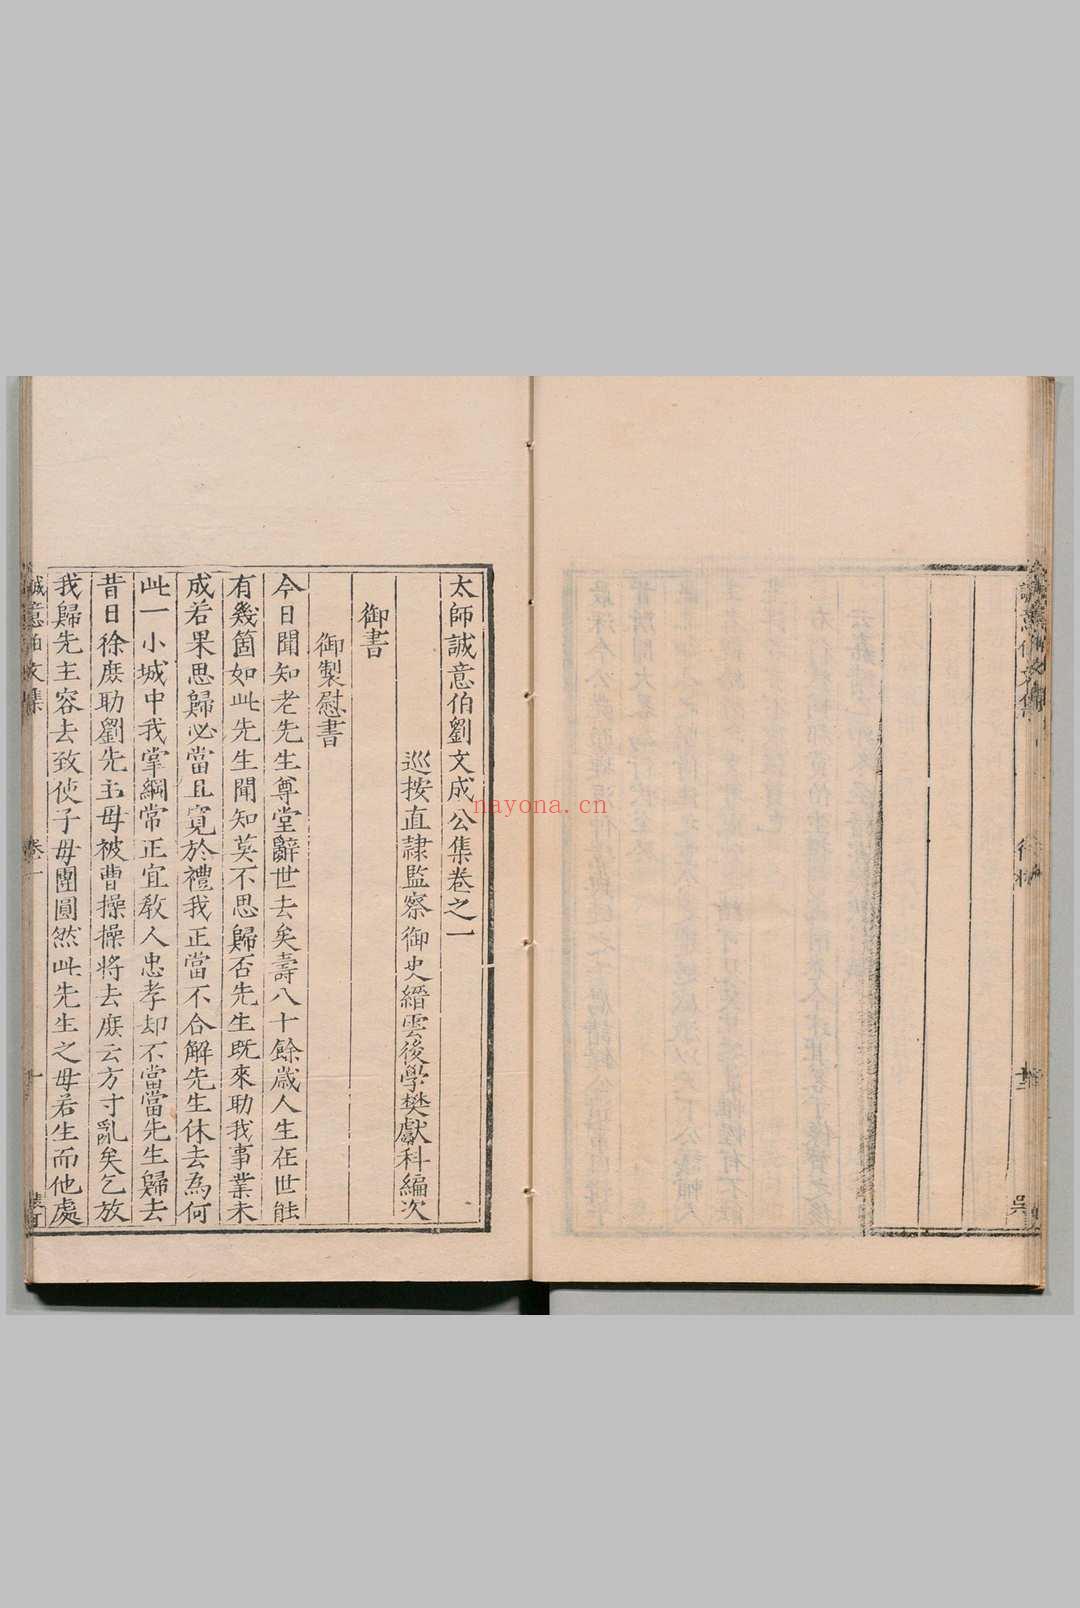 太師誠意伯劉文成公集卷之一
巡按直隷監察御史縉雲後學樊獻科編次
御書
御製慰書
今日聞知老先生尊堂辭世去矣壽八十餘歲人生在世能
有幾箇如此先生聞知莫不思歸否先生既來助我事業未
成若果思歸必當且寬於禮我正當不合解先生休去為何
此一小城中我掌綱常正宜教人忠孝却不當當先生歸去
昔日徐庶助劉先主母被曹操操將去庶云方寸亂矣乞放
我歸先主容去致使子母團圓然此先生之母若生而他處
誠意伯文集
卷一
一
nayona.cn